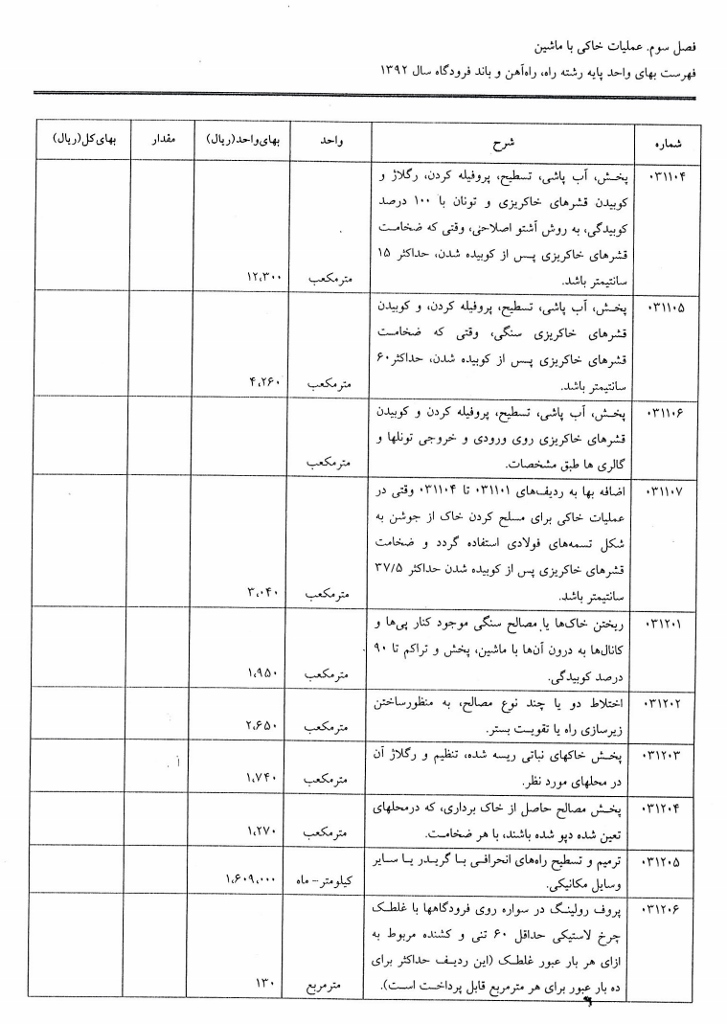 فصل سوم. عملیات خاکی با ماشین
فهرست بهای واحد پایه رشته راه، راه‌آهن و باند فرودگاه سال ۱۳۹۲
شماره شرح واحد بهای‌واحد(ریال) مقدار بهای‌کل(ریال)
۰۳۱۱۰۴ پخش، آب پاشی، تسطیح، پروفیله کردن، رگلاژ و
کوبیدن قشرهای خاکریزی و تونان با ۱۰۰ درصد
کوبیدگی، به روش آشتو اصلاحی، وقتی که ضخامت
قشرهای خاکریزی پس از کوبیده شدن، حداکثر ۱۵
سانتیمتر باشد. مترمکعب ۱۲،۳۰۰
۰۳۱۱۰۵ پخش، آب پاشی، تسطیح، پروفیله کردن، و کوبیدن
قشرهای خاکریزی سنگی، وقتی که ضخامت
قشرهای خاکریزی پس از کوبیده شدن، حداکثر۶۰
سانتیمتر باشد. مترمکعب ۴،۲۶۰
۰۳۱۱۰۶ پخش، آب پاشی، تسطیح، پروفیله کردن و کوبیدن
قشرهای خاکریزی روی ورودی و خروجی تونلها و
گالری ها طبق مشخصات. مترمکعب
۰۳۱۱۰۷ اضافه بها به ردیف‌های ۰۳۱۱۰۱ تا ۰۳۱۱۰۴ وقتی در
عملیات خاکی برای مسلح کردن خاک از جوشن به
شکل تسمه‌های فولادی استفاده گردد و ضخامت
قشرهای خاکریزی پس از کوبیده شدن حداکثر ۳۷/۵
سانتیمتر باشد. مترمکعب ۳،۰۴۰
۰۳۱۲۰۱ ریختن خاک‌ها یا مصالح سنگی موجود کنار پی‌ها و
کانال‌ها به درون آن‌ها با ماشین، پخش و تراکم تا ۹۰
درصد کوبیدگی. مترمکعب ۱،۹۵۰
۰۳۱۲۰۲ اختلاط دو یا چند نوع مصالح، به منظورساختن
زیرسازی راه یا تقویت بستر. مترمکعب ۲،۶۵۰
۰۳۱۲۰۳ پخش خاکهای نباتی ریسه شده، تنظیم و رگلاژ آن
در محلهای مورد نظر. مترمکعب ۱،۷۴۰
۰۳۱۲۰۴ پخش مصالح حاصل از خاک برداری، که درمحلهای
تعین شده دپو شده باشند، با هر ضخامت. مترمکعب ۱،۲۷۰
۰۳۱۲۰۵ ترمیم و تسطیح راه‌های انحرافی با گریدر یا سایر
وسایل مکانیکی. کیلومتر- ماه ۱،۶۰۹،۰۰۰
۰۳۱۲۰۶ پروف رولینگ در سواره روی فرودگاهها با غلطک
چرخ لاستیکی حداقل ۶۰ تنی و کشنده مربوط به
ازای هر بار عبور غلطک (این ردیف حداکثر برای
ده بار عبور برای هر مترمربع قابل پرداخت است). مترمربع ۱۳۰